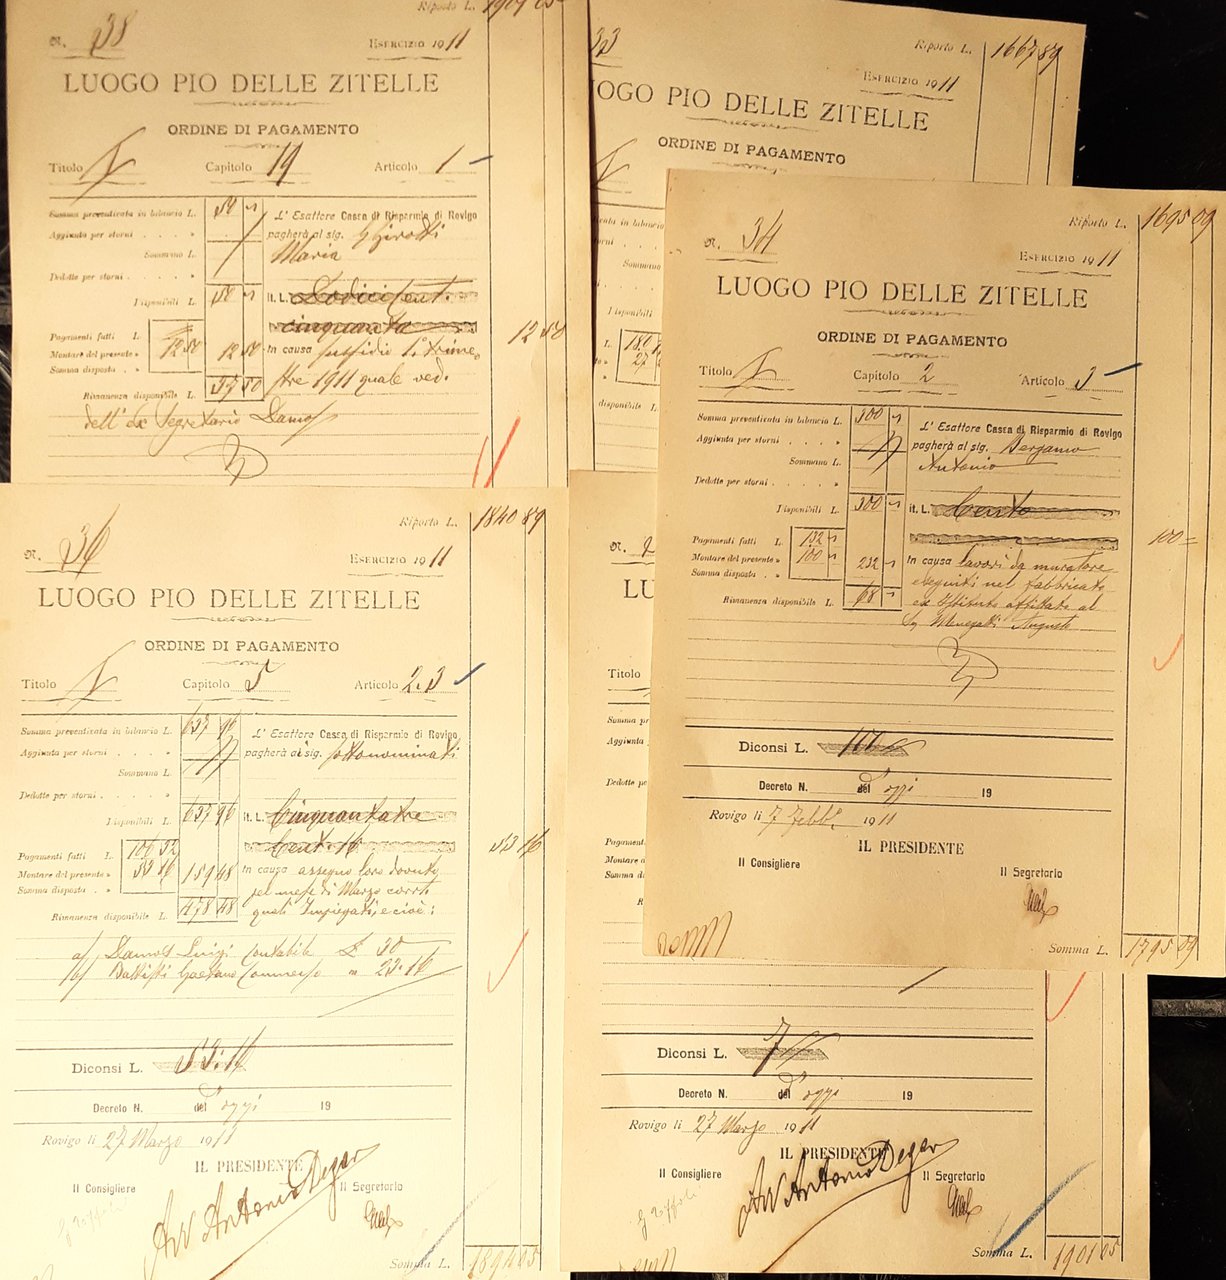 Riporto L. 1901 05
N. 38
ESERCIZIO 1911
LUOGO PIO DELLE ZITELLE
ORDINE DI PAGAMENTO
Titolo I Capitolo 19 Articolo 1
Somma preventivata in bilancio L. 50
Aggiunta per storni
Sommano L.
Dedotte per storni
Disponibili L. 50
Pagamenti fatti L.
Montare del presente » 12 50 12 50
Somma disposta
Rimanenza disponibile L. 37 50
L' Esattore Cassa di Risparmio di Rovigo
pagherà al sig. Ghirotti
Maria
it. L. Dodici Cent.
cinquanta
12 50
In causa sussidio 1° trime
stre 1911 quale ved.
dell' ex Segretario
33
Riporto L. 1667 89
ESERCIZIO 1911
OGO PIO DELLE ZITELLE
ORDINE DI PAGAMENTO
in bilancio L.
Sommano
Disponibili L.
180
27
disponibile L.
Riporto L. 1695 09
N. 34
ESERCIZIO 1911
LUOGO PIO DELLE ZITELLE
ORDINE DI PAGAMENTO
Titolo I Capitolo 2 Articolo 3
Somma preventivata in bilancio L. 300
Aggiunta per storni
Sommano L.
Dedotte per storni
Disponibili L. 300
Pagamenti fatti L. 132
Montare del presente » 100 232
Somma disposta
Rimanenza disponibile L. 68
L' Esattore Cassa di Risparmio di Rovigo
pagherà al sig. Bergamo
Antonio
it. L. Cento
100 =
In causa lavori da muratore
eseguiti nel fabbricato
ex Istituto affittato al
Sig Menegatti Augusto
Diconsi L. 100
Decreto N. del d'oggi 19
Rovigo li 7 Febb. 1911
IL PRESIDENTE
Il Consigliere
Il Segretario
Somma L. 1795 09
Riporto L. 1840 89
N. 36
ESERCIZIO 1911
LUOGO PIO DELLE ZITELLE
ORDINE DI PAGAMENTO
Titolo I Capitolo 5 Articolo 2.3
Somma preventivata in bilancio L. 637 96
Aggiunta per storni
Sommano L.
Dedotte per storni
Disponibili L. 637 96
Pagamenti fatti L. 106 32
Montare del presente » 53 16 159 48
Somma disposta
Rimanenza disponibile L. 478 48
L' Esattore Cassa di Risparmio di Rovigo
pagherà ai sig. sottonominati
it. L. Cinquantatre
Cent. 16
53 16
In causa assegno loro dovuto
pel mese di Marzo corr.
quali Impiegati, e cioè:
a) Luigi Contabile £ 30
b) Battisti Gaetano Commesso " 23.16
Diconsi L. 53.16
Decreto N. del d'oggi 19
Rovigo li 27 Marzo 1911
IL PRESIDENTE
Il Consigliere
Il Segretario
Avv Antonio Degan
Somma L. 1894 05
N.
LU
Titolo
Somma pr
Aggiunta
Dedotte pe
Pagament
Montare d
Somma d
Diconsi L. 7
Decreto N. del d'oggi 19
Rovigo li 27 Marzo 1911
IL PRESIDENTE
Il Consigliere
Il Segretario
Avv Antonio Degan
Somma L. 1901 05